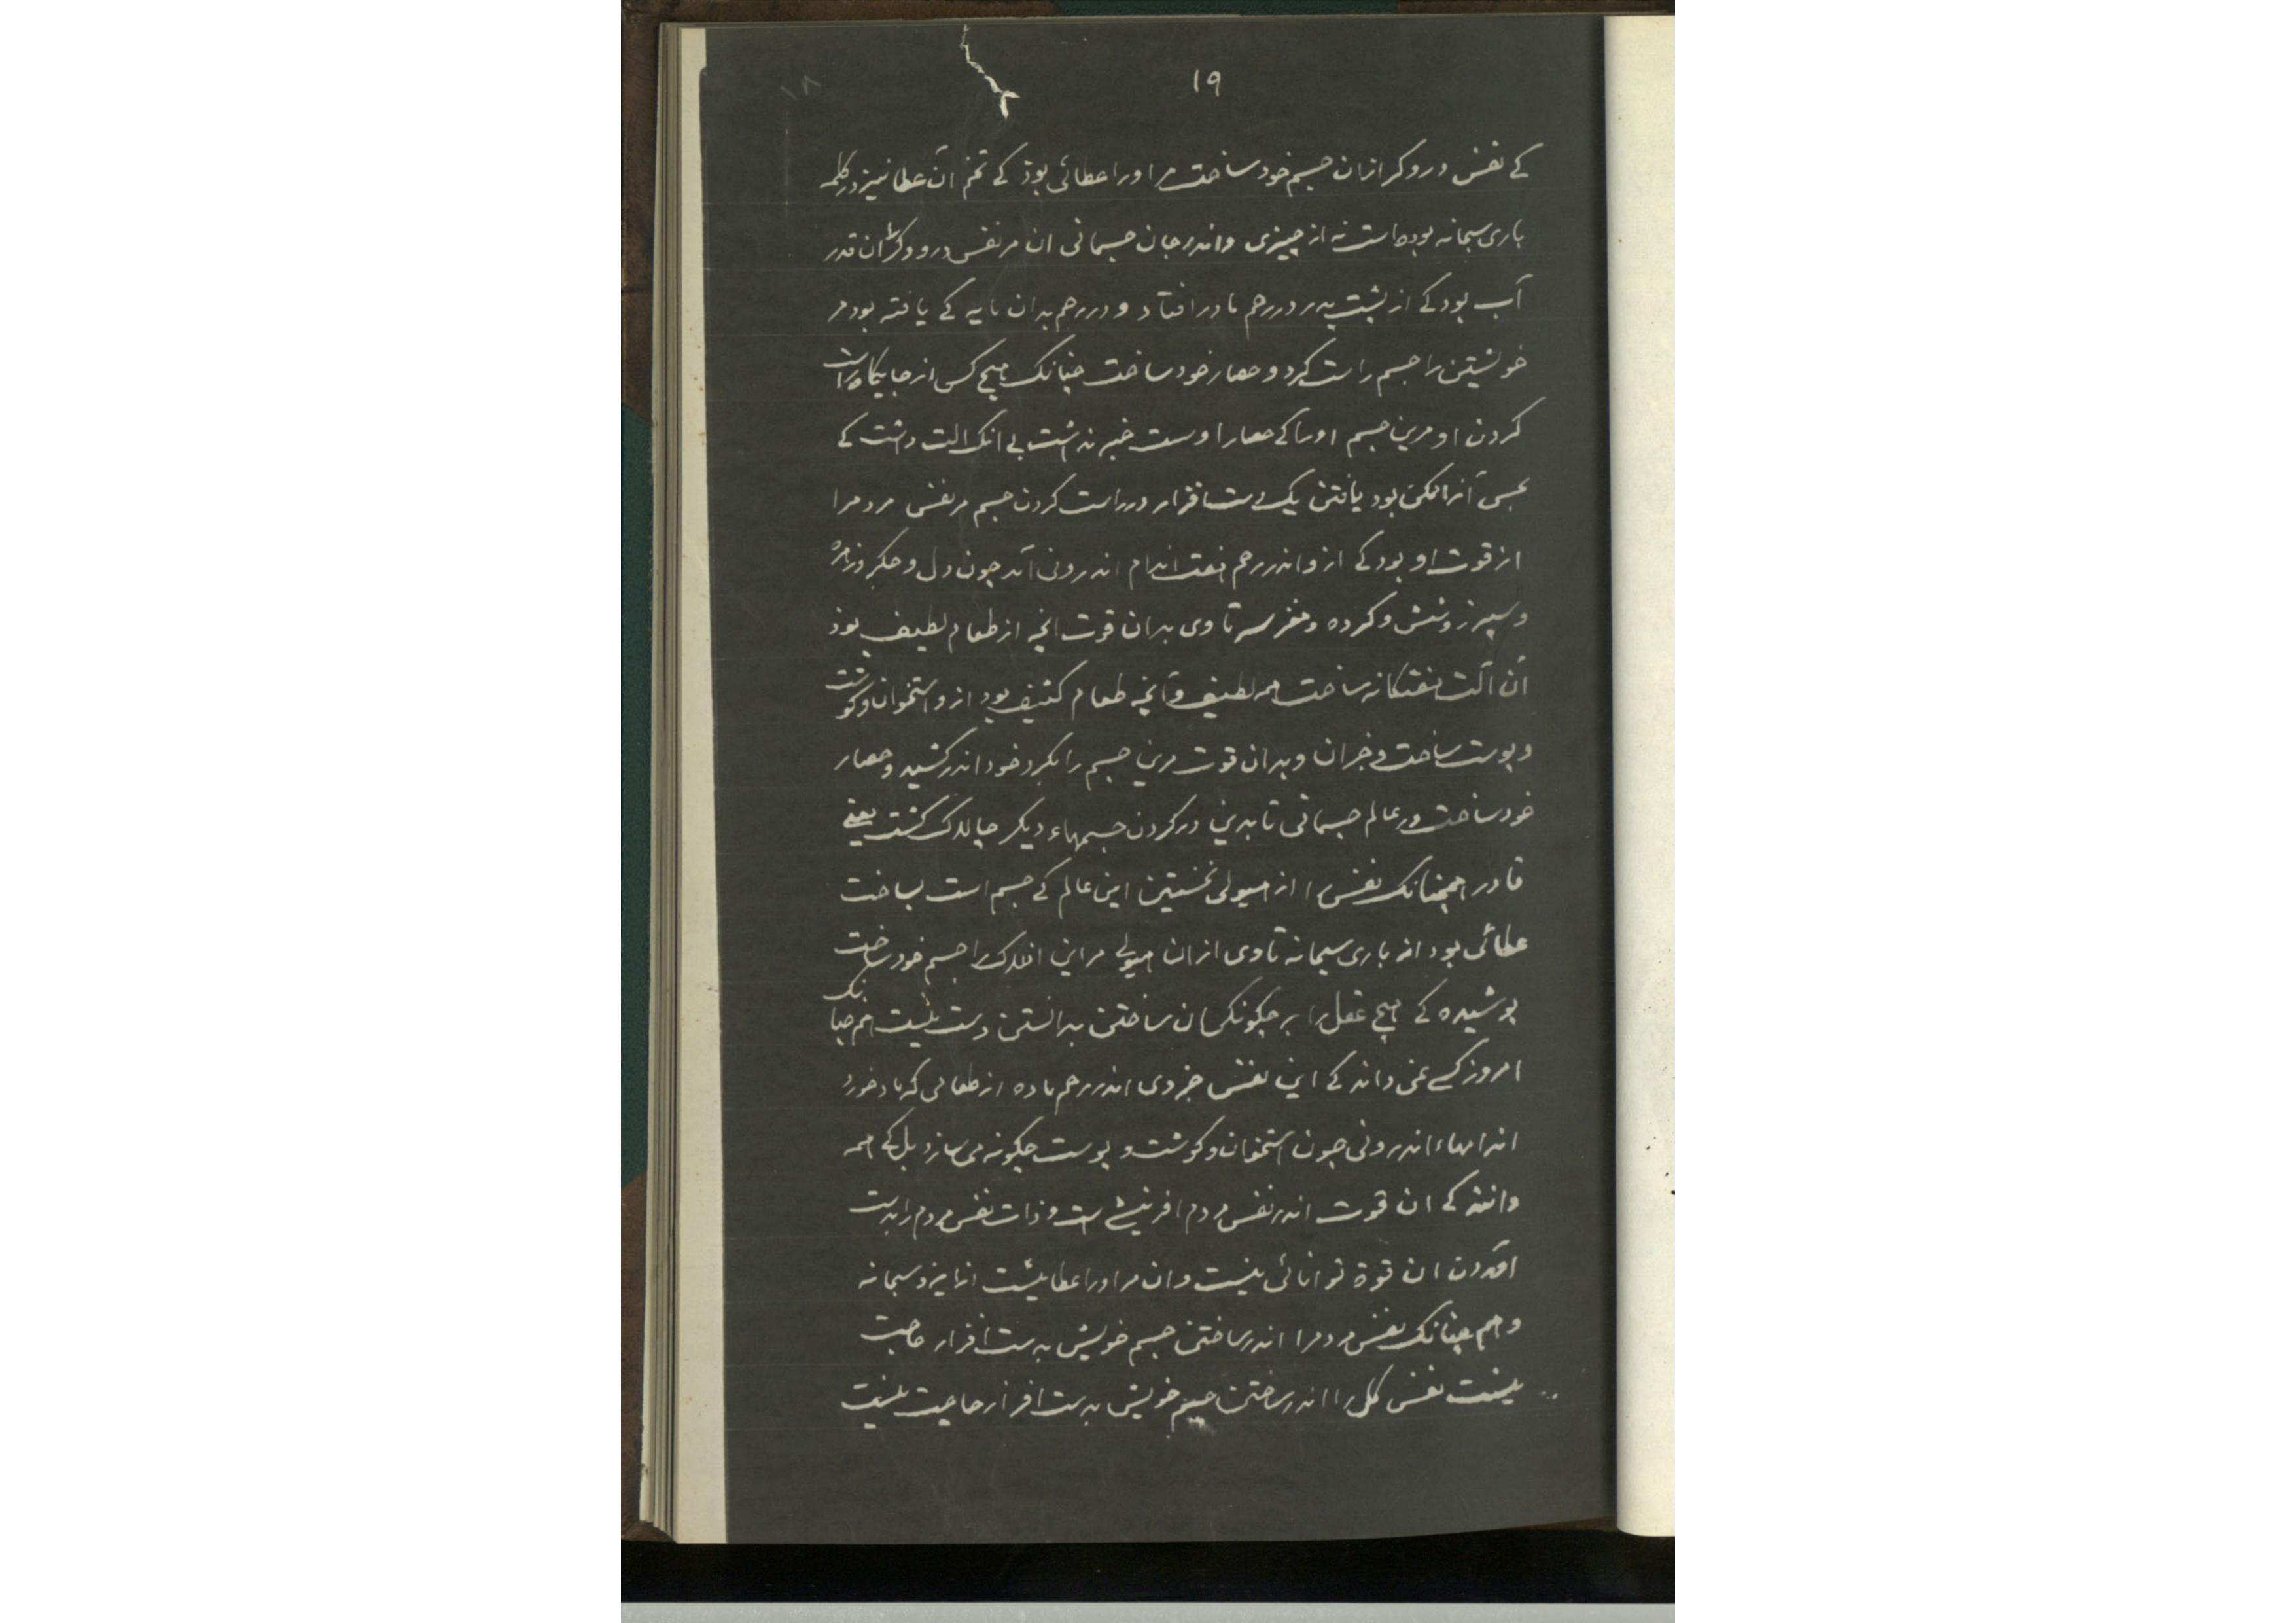 ۱۹
۱۸
کے نفس درودکر ازان جسم خود ساخت مر اورا عطائی بوذ کے تخم آن عطا نیز در کلمه
باری سبحانه بوده است نه از چیزی واندر جان جسمانی ان مر نفس درودکر را ان قدر
آب بود کے از پشت پدر در رحم مادر افتاد و در رحم بدان مایه کے یافته بود مر
خویشتن را جسم راست کرد و حصار خود ساخت چنانک هیچ کس از جایکاه راست
کردن او مرین جسم اورا کے حصار اوست خبر نداشت بی انک الت داشت کے
بحس آنرا ممکن بود یافتن یک دست افزار در راست کردن جسم مر نفس مردم را
از قوت او بود کے ازو اندر رحم هفت اندام اندرونی آمد چون دل و جکر و زهره
و سپرز و شش و کرده و مغز سر تا وی بدان قوت انچه از طعام لطیف بوذ
آن آلت هفتکانه ساخت همه لطیف و آنچه طعام کثیف بود ازو استخوان و کوشت
و پوست ساخت و جزان و بدان قوت مرین جسم را بکرد خود اندر کشید و حصار
خود ساخت در عالم جسمانی تا بدین در کردن جسمهاء دیکر چالاک کشت یعنی
قادر همچنانک نفس را از هیولی نخستین این عالم کے جسم است بساخت
عطائی بود از باری سبحانه تا وی ازان هیولی مر این افلاک را جسم خود ساخت
پوشیده کے هیچ عقل را بر چکونکی ان ساختن بدانستن دست نیست هم چنانک
امروز کسی نمی داند کے این نفس جزوی اندر رحم ماده از طعامی که مادر خورد
اندامهاء اندرونی چون استخوان و کوشت و پوست چکونه می سازد بل کے همه
دانند کے ان قوت اندر نفس مردم افرینشی است و ذات نفس مردم را بدست
آوردن ان قوة توانائی نیست و ان مر اورا عطا نیست از ایزد سبحانه
و هم چنانک نفس مردم را اندر ساختن جسم خویش بدست افزار حاجت
نیست نفس کلی را اندر ساختن جسم خویش بدست افزار حاجت نیست